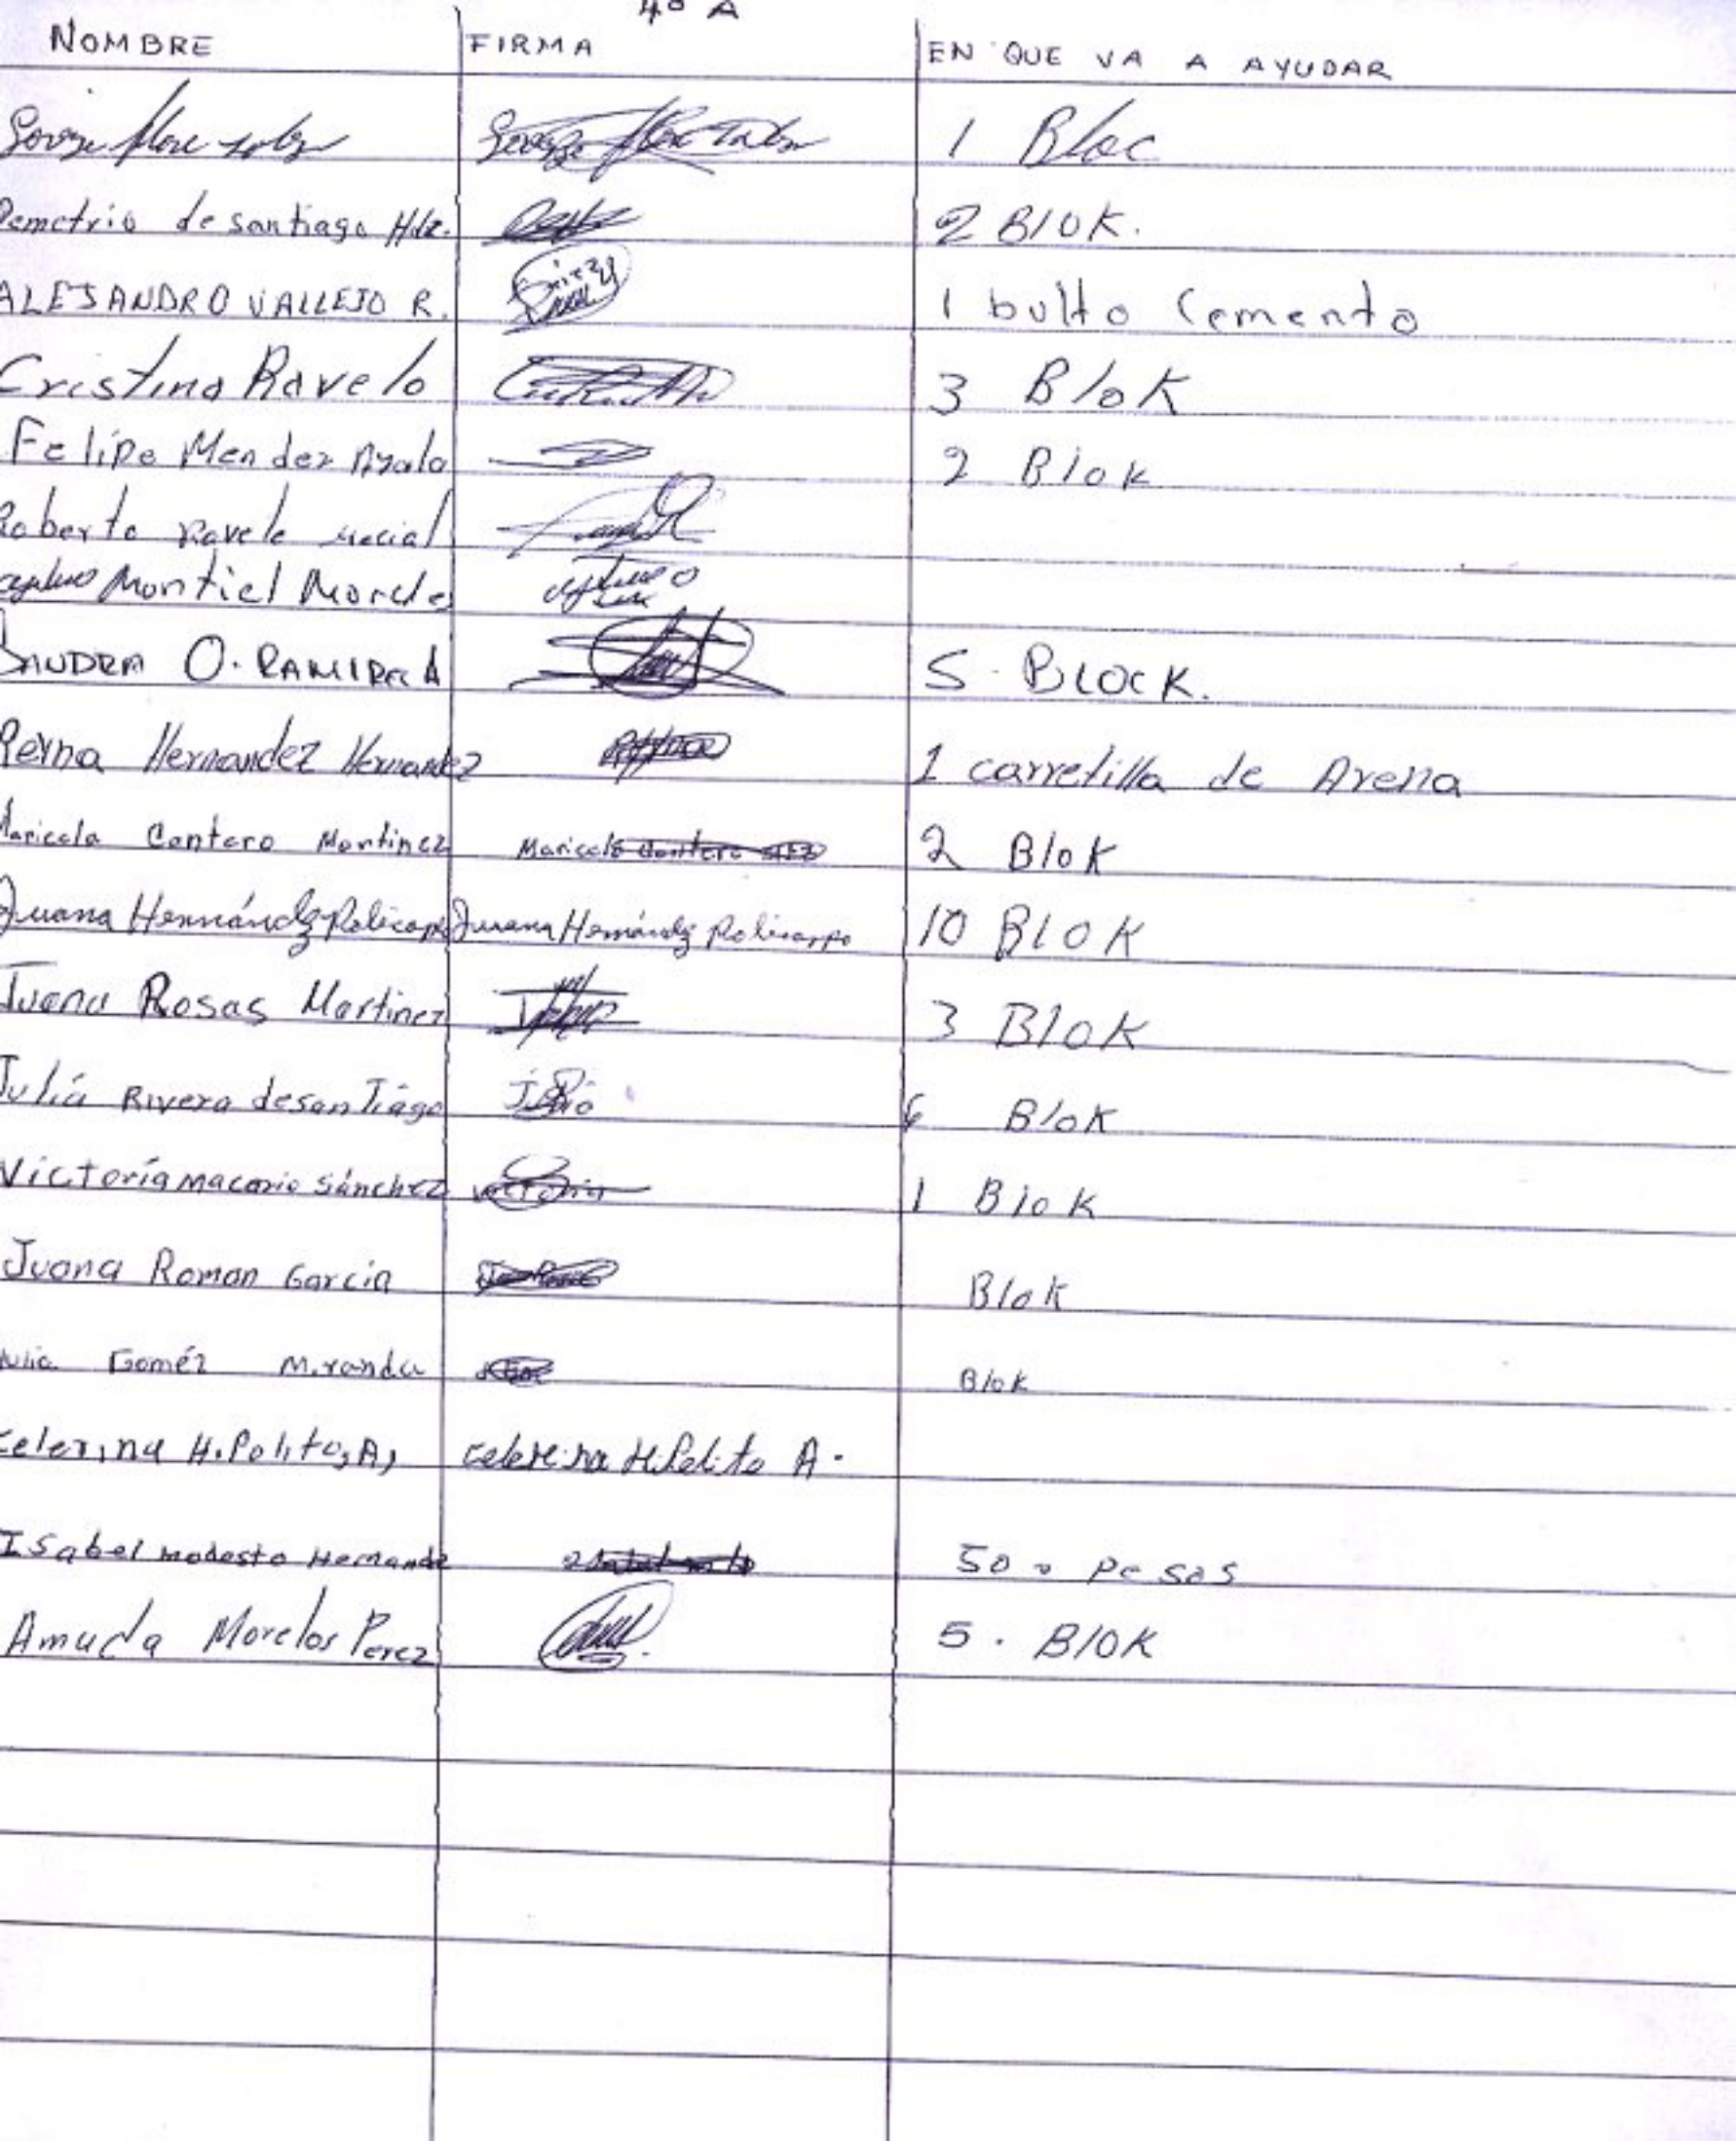 4º A
NOMBRE FIRMA EN QUE VA A AYUDAR
1 Bloc
Demetrio de santiago Hdz. 2 Blok.
ALEJANDRO VALLEJO R. 1 bulto Cemento
Cristina Ravelo 3 Blok
Felipe Mendez Ayala 2 Blok
Roberto Ravelo
Montiel Morele
SANDRA O. RAMIREZ A 5 BLOCK.
Reyna Hernandez Hernandez 1 carretilla de Arena
Maricela Cantero Martinez Maricela Cantero 2 Blok
Juana Hernández Policarpo Juana Hernández Policarpo 10 Blok
Juana Rosas Martinez 3 Blok
Julia Rivera desantiago 6 Blok
Victoría macario Sánchez victoria 1 Blok
Juana Roman Garcia Blok
Julia Goméz Miranda Blok
Celerina H.Polito,A, Celerina H.Polito A.
Isabel modesto Hernande 50 pesos
Amada Morelos Perez 5. Blok